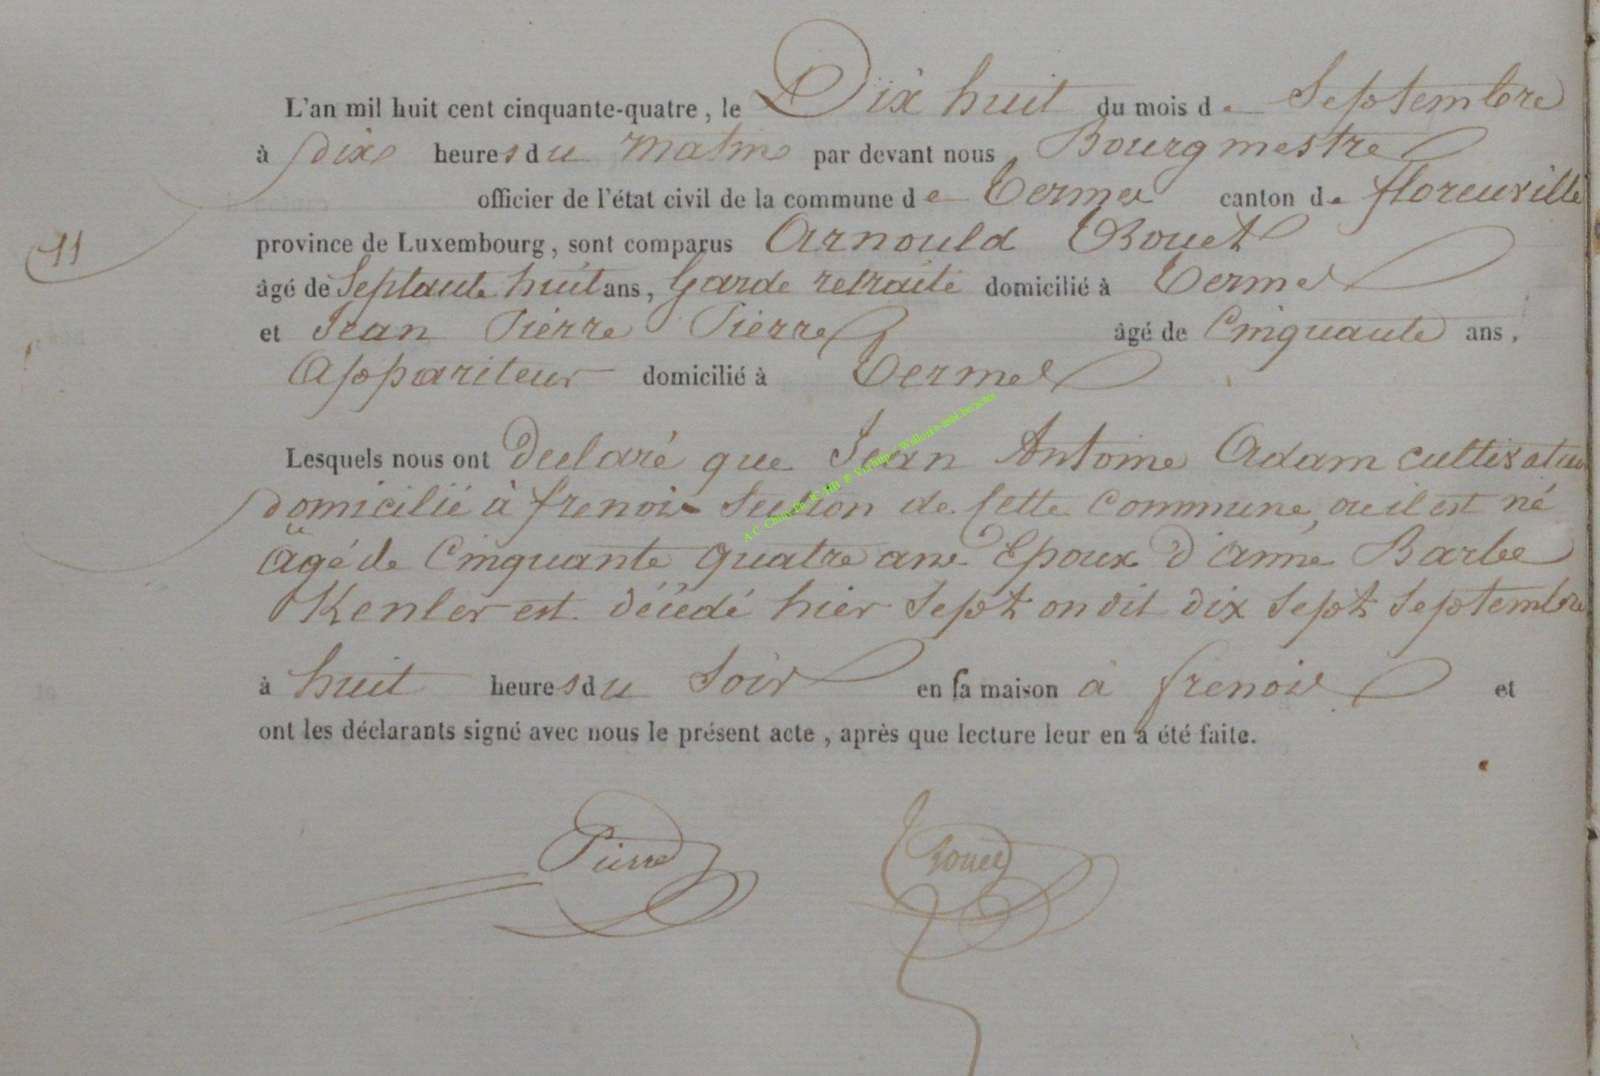 L'an mil huit cent cinquante-quatre, le Dix huit du mois de Septembre
à dix heures du matin par devant nous Bourgmestre
officier de l'état civil de la commune de Termes canton de florenville
province de Luxembourg, sont comparus Arnould Rouet
11
âgé de Septante huit ans, Garde retraité domicilié à Termes
et Jean Pierre Pierre âgé de Cinquante ans,
Appariteur domicilié à Termes
Lesquels nous ont declaré que Jean Antoine Adam cultivateur
domicilié à frenois Section de Cette Commune, ou il est né
âgé de Cinquante quatre ans Epoux d'anne Barbe
Kenler est décédé hier Sept on dit dix Sept Septembre
à huit heures du Soir en sa maison à frenois et
ont les déclarants signé avec nous le présent acte, après que lecture leur en a été faite.
Pierre Rouet